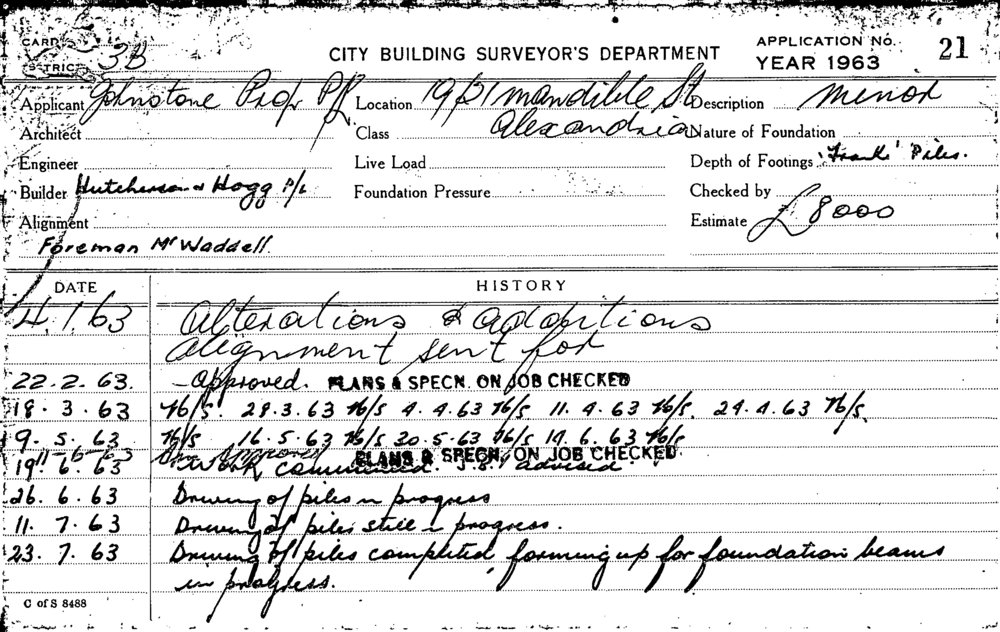 CARD
DISTRICT 3B
CITY BUILDING SURVEYOR'S DEPARTMENT
APPLICATION No. 21
YEAR 1963
Applicant Johnstone Prop P/L Location 19/51 Mandible St Description Minor
Architect Class Alexandria Nature of Foundation
Engineer Live Load Depth of Footings 'Franki' Piles.
Builder Hutcherson & Hogg P/L Foundation Pressure Checked by
Alignment Estimate £8000
Foreman Mr Waddell.
DATE HISTORY
4.1.63 Alterations & additions
Alignment sent for
22.2.63. — Approved. PLANS & SPECN. ON JOB CHECKED
18.3.63 N/S. 28.3.63 N/S 4.4.63 N/S 11.4.63 N/S. 24.4.63 N/S.
9.5.63 N/S 16.5.63 N/S 30.5.63 N/S 14.6.63 N/S
11-6-63 Approved PLANS & SPECN. ON JOB CHECKED
19.6.63 Work commenced. advised
26.6.63 Driving of piles in progress
11.7.63 Driving of piles still in progress.
23.7.63 Driving of piles completed, forming up for foundation beams
in progress.
C of S 8488